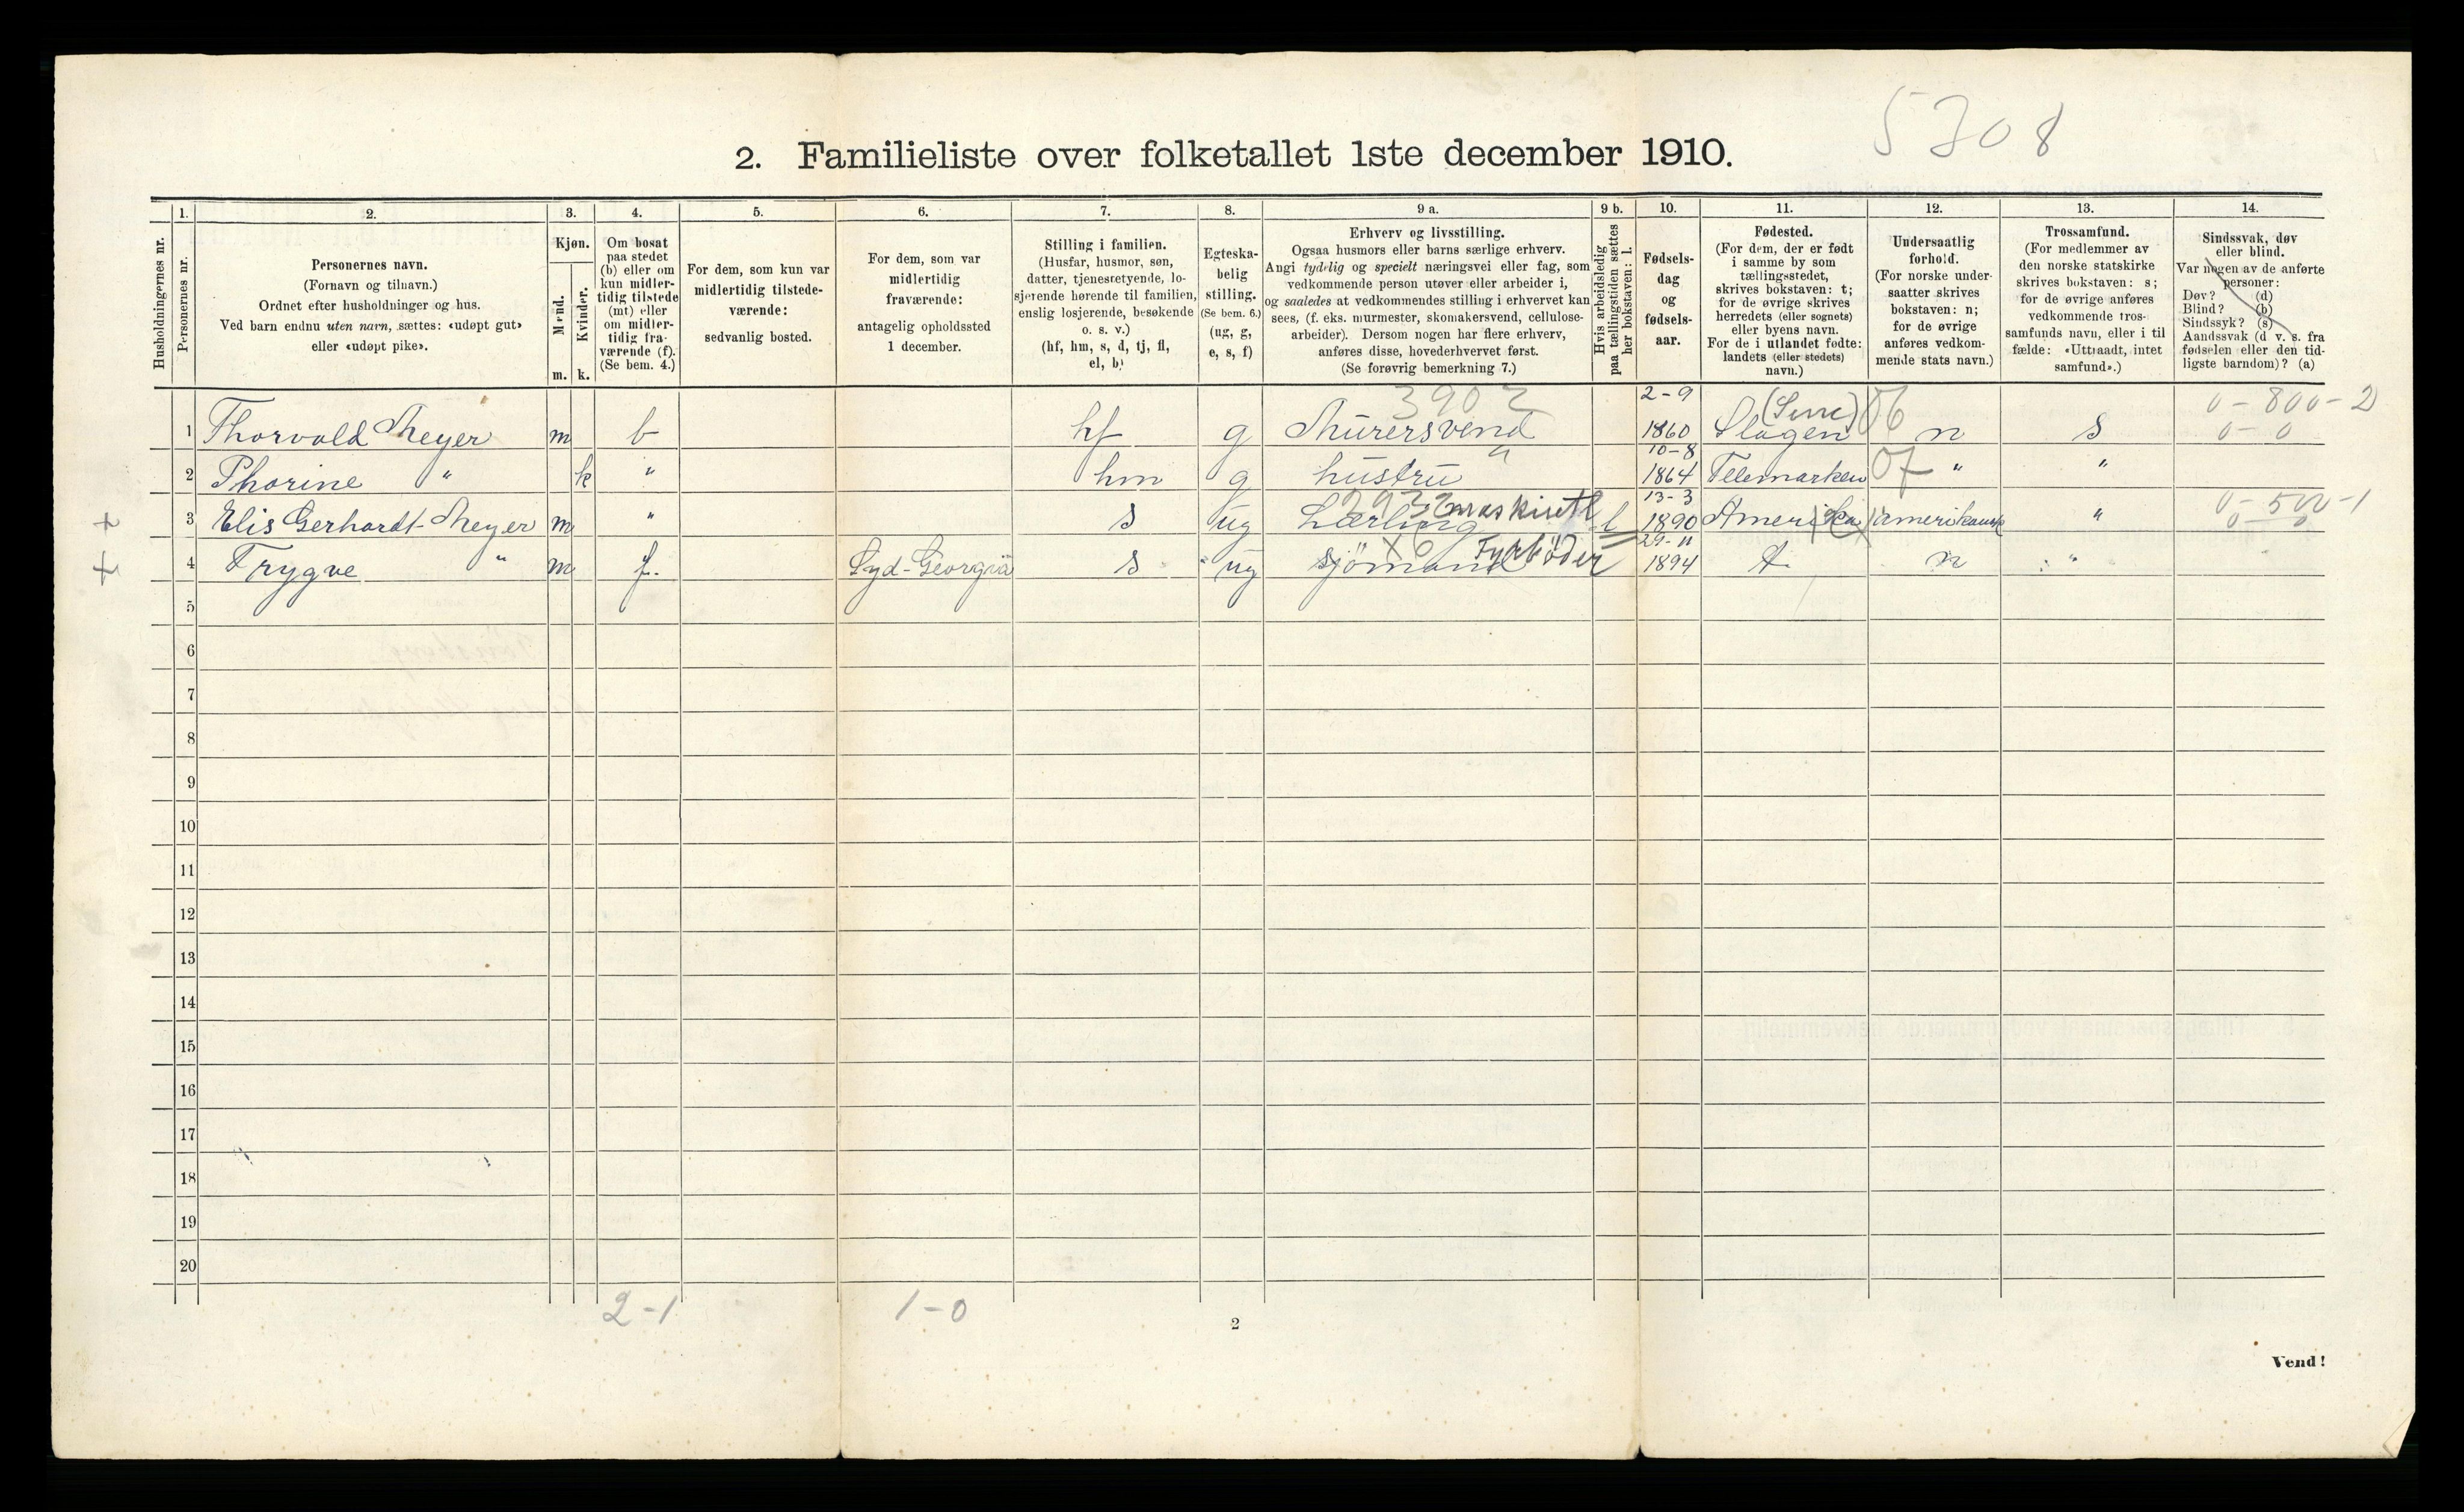 5708
2. Familieliste over folketallet 1ste december 1910.
Husholdningernes nr.
1. Personernes nr.
2. Personernes navn.
(Fornavn og tilnavn.)
Ordnet efter husholdninger og hus.
Ved barn endnu uten navn, sættes: «udøpt gut»
eller «udøpt pike».
3. Kjøn.
Mænd. Kvinder.
m. k.
4. Om bosat
paa stedet
(b) eller om
kun midler-
tidig tilstede
(mt) eller
om midler-
tidig fra-
værende (f).
(Se bem. 4.)
5. For dem, som kun var
midlertidig tilstede-
værende:
sedvanlig bosted.
6. For dem, som var
midlertidig
fraværende:
antagelig opholdssted
1 december.
7. Stilling i familien.
(Husfar, husmor, søn,
datter, tjenestetyende, lo-
sjerende hørende til familien,
enslig losjerende, besøkende
o. s. v.)
(hf, hm, s, d, tj, fl,
el, b)
8. Egteska-
belig
stilling.
(Se bem. 6.)
(ug, g,
e, s, f)
9 a. Erhverv og livsstilling.
Ogsaa husmors eller barns særlige erhverv.
Angi tydelig og specielt næringsvei eller fag, som
vedkommende person utøver eller arbeider i,
og saaledes at vedkommendes stilling i erhvervet kan
sees, (f. eks. murmester, skomakersvend, cellulose-
arbeider). Dersom nogen har flere erhverv,
anføres disse, hovederhvervet først.
(Se forøvrig bemerkning 7.)
9 b. Hvis arbeidsledig
paa tællingstiden sættes
her bokstaven: l.
10. Fødsels-
dag
og
fødsels-
aar.
11. Fødested.
(For dem, der er født
i samme by som
tællingsstedet,
skrives bokstaven: t;
for de øvrige skrives
herredets (eller sognets)
eller byens navn.
For de i utlandet fødte:
landets (eller stedets)
navn.)
12. Undersaatlig
forhold.
(For norske under-
saatter skrives
bokstaven: n;
for de øvrige
anføres vedkom-
mende stats navn.)
13. Trossamfund.
(For medlemmer av
den norske statskirke
skrives bokstaven: s;
for de øvrige anføres
vedkommende tros-
samfunds navn, eller i til
fælde: «Uttraadt, intet
samfund».)
14. Sindssvak, døv
eller blind.
Var nogen av de anførte
personer:
Døv? (d)
Blind? (b)
Sindssyk? (s)
Aandssvak (d v. s. fra
fødselen eller den tid-
ligste barndom)? (a)
3902 2-9 0-800-2
1 Thorvald Meyer m b hf g Mürersvend 1860 Slagen 06 n s 0-0
2 Thorine " k " hm g hustrü " 10-8 1864 Telemarken 07 " "
3 Elis Gerhardt Meyer m " s ug Lærling l 13-3 1890 Amerika amerikansk " 0-500-1
4 Trygve " m f. Syd-Georgia s ug sjömand Fyrböder 29-11 1894 t. n "
5
6
7
8
9
10
11
12
13
14
15
16
17
18
19
20
2-1 1-0
2
Vend!